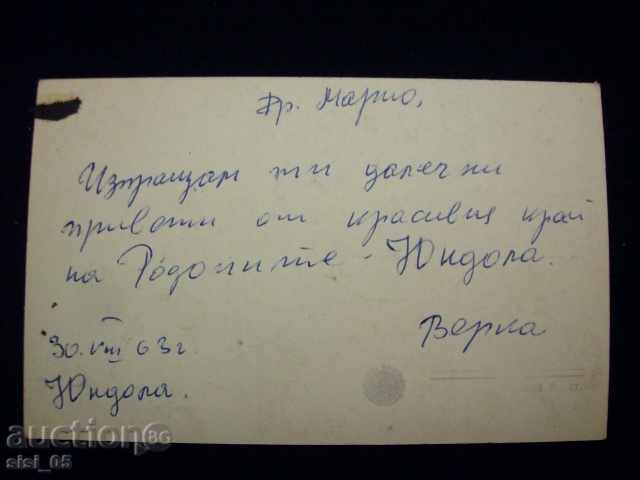 Др. Марио,
Изпращам ти далечни
привети от красивия край
на Родопите - Юндола.
Верка
30.VIII 63 г.
Юндола.
auctionBG
sisi_05